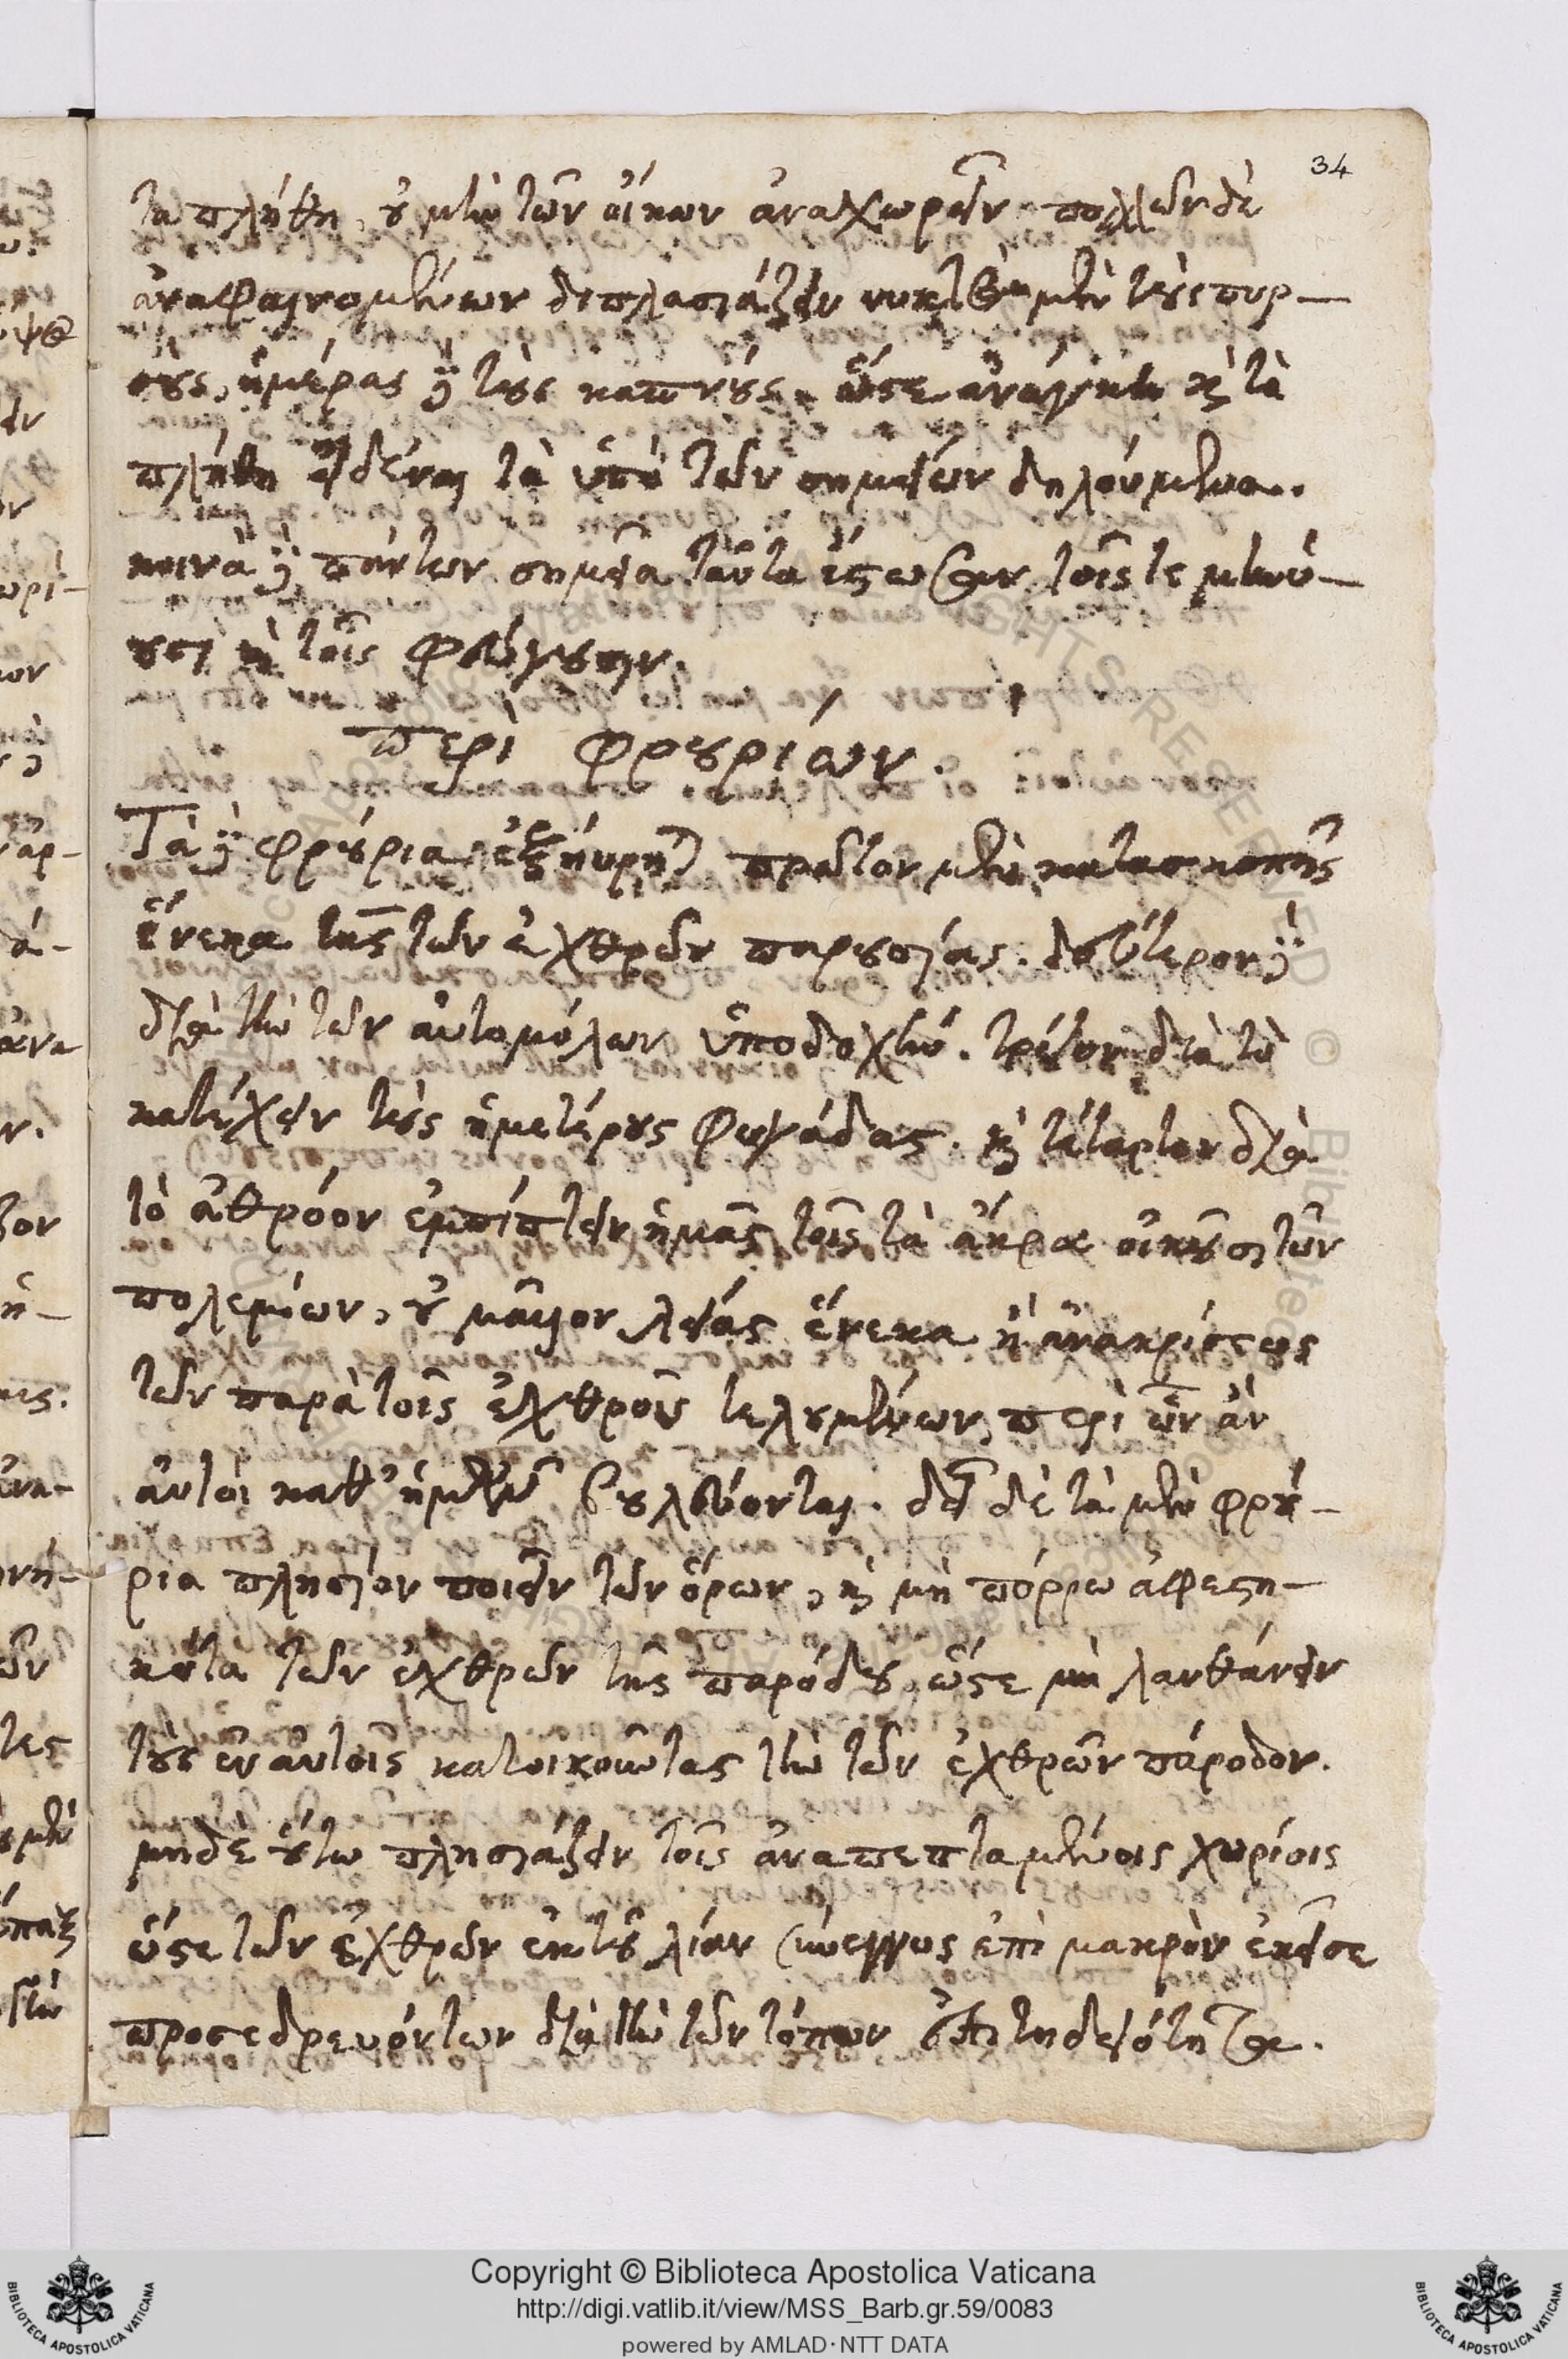 34
τὰ πλήθη, οὐ μὴν τῶν οἴκων ἀναχωρεῖν. πολλῶν δὲ
ἀναφαινομένων διπλασιάζειν νυκτὸς μὲν τοὺς πυρ-
σοὺς, ἡμέρας δὲ τοὺς καπνούς. ὥστε ἀνάγκη καὶ τὰ
πλήθη εἰδέναι τὰ ὑπὸ τῶν σημείων δηλούμενα.
κοινὰ δὲ πάντων σημεῖα ταῦτα ἔστωσαν τοῖς τε μένου-
σι καὶ τοῖς φεύγουσιν.
περὶ φρουρίων.
Τὰ δὲ φρούρια ἐξηύρηται πρῶτον μὲν κατασκοπῆς
ἕνεκα τῆς τῶν ἐχθρῶν παρουσίας. δεύτερον δὲ
διὰ τὴν τῶν αὐτομόλων ὑποδοχήν. τρίτον διὰ τὸ
κατέχειν τοὺς ἡμετέρους φυγάδας. καὶ τέταρτον διὰ
τὸ ἀθρόον ἐμπίπτειν ἡμᾶς τοῖς τὰ ἄκρα οἰκοῦσι τῶν
πολεμίων, οὐ μᾶλλον λείας ἕνεκα ἢ ἀνακρίσεως
τῶν παρὰ τοῖς ἐχθροῖς τελουμένων, περὶ ὧν ἂν
αὐτοὶ καθ' ἡμῶν βουλεύονται. δεῖ δὲ τὰ μὲν φρού-
ρια πλησίον ποιεῖν τῶν ὅρων, καὶ μὴ πόρρω ἀφεστη-
κότα τῶν ἐχθρῶν τῆς παρόδου, ὥστε μὴ λανθάνειν
τοὺς ἐν αὐτοῖς κατοικοῦντας τὴν τῶν ἐχθρῶν πάροδον.
μηδὲ οὕτω πλησιάζειν τοῖς ἀναπεπταμένοις χωρίοις
ὥστε τῶν ἐχθρῶν ἐκ τοῦ λίαν σύνεγγυς ἐπὶ μακρὸν ἐκεῖσε
προσεδρευόντων διὰ τὴν τῶν τόπων ἐπιτηδειότητα.
Copyright © Biblioteca Apostolica Vaticana
http://digi.vatlib.it/view/MSS_Barb.gr.59/0083
powered by AMLAD·NTT DATA